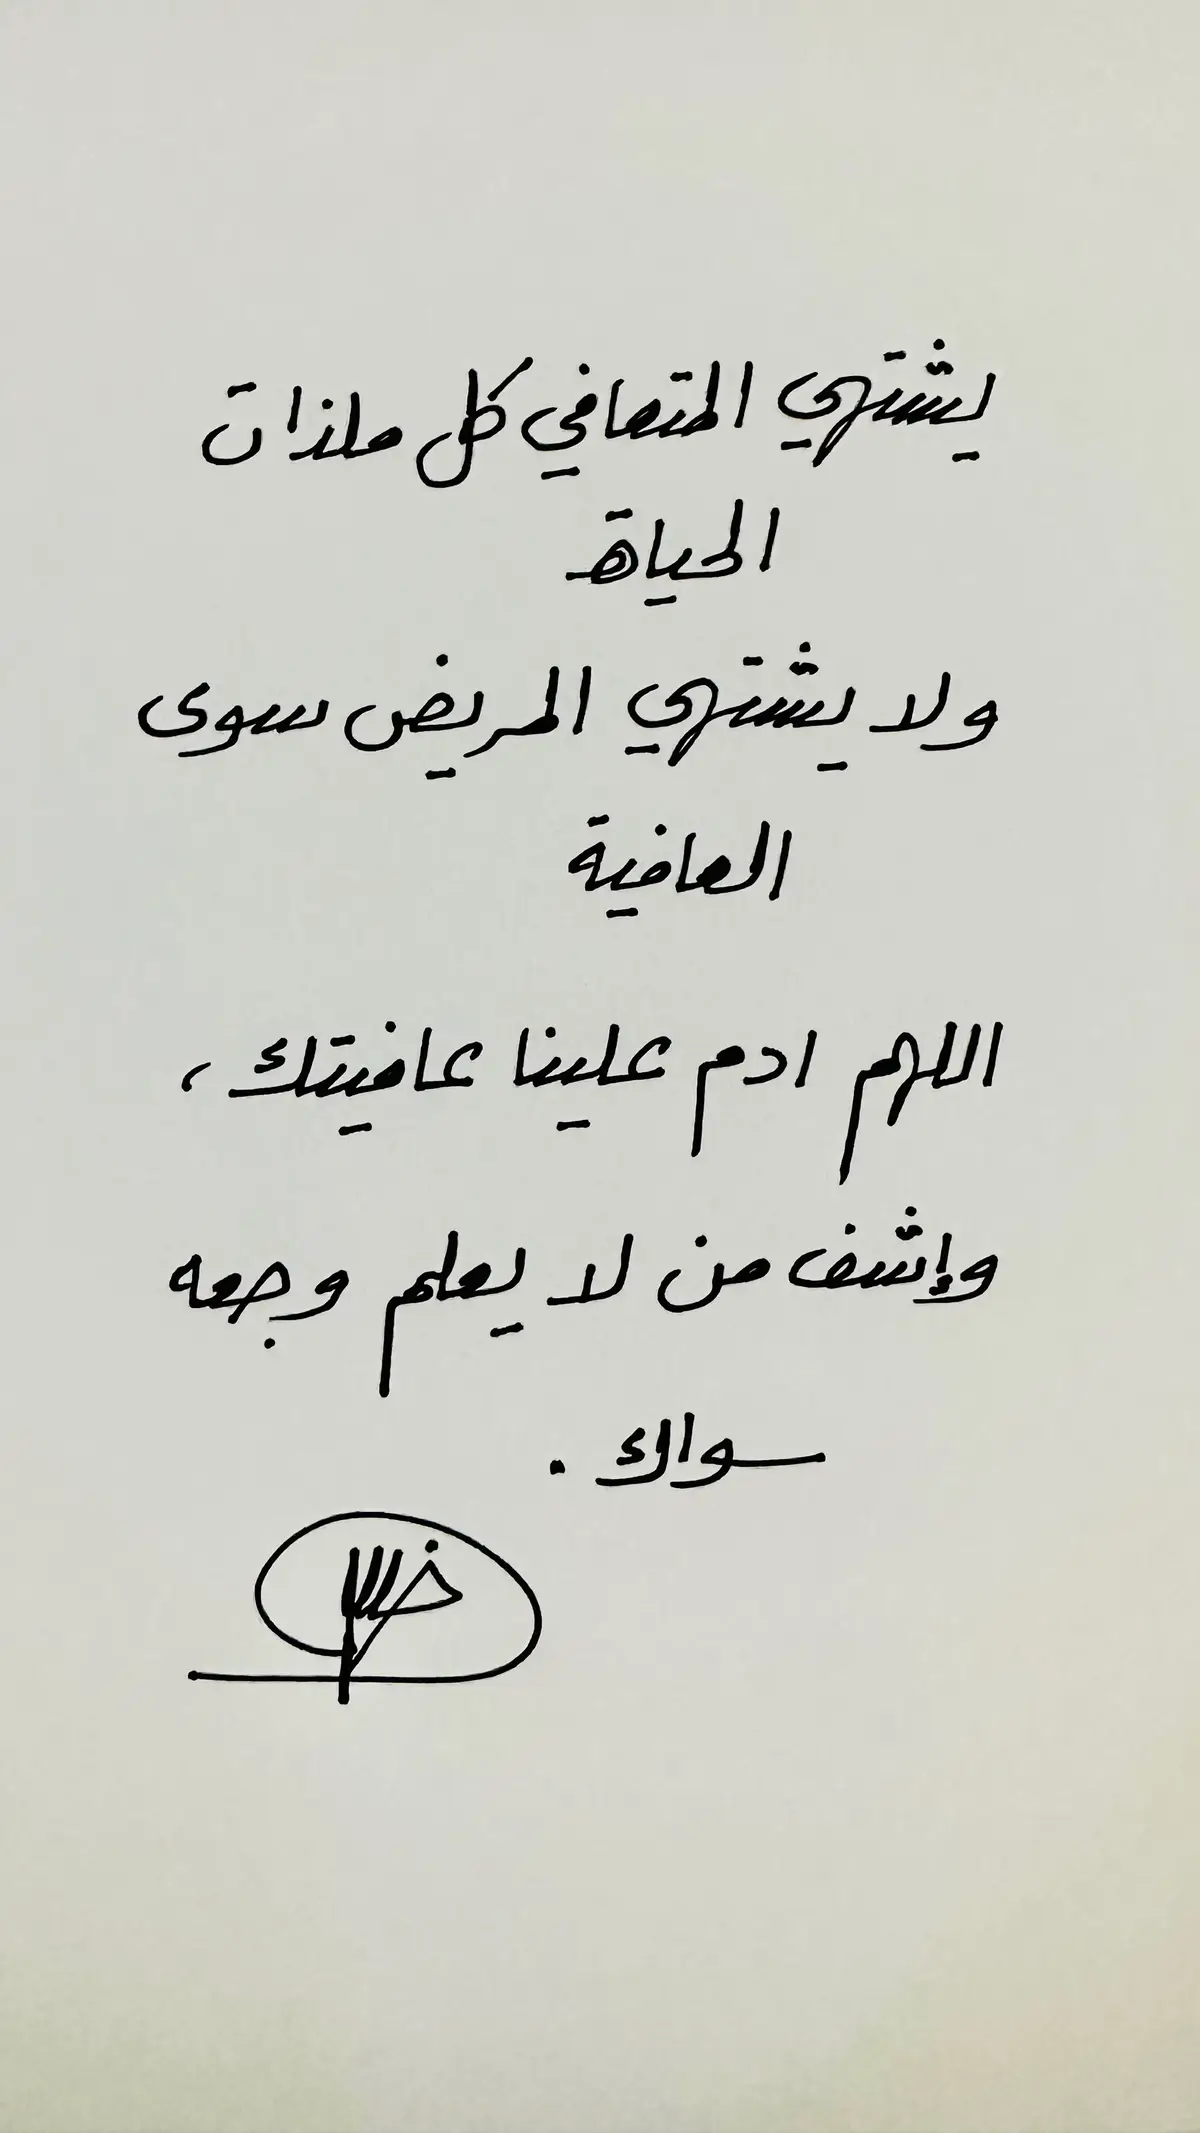 يشتهي المتعافي كل ملذات
الحياة
ولا يشتهي المريض سوى
العافية
اللهم ادم علينا عافيتك ،
وإشف من لا يعلم وجعه
سواك .